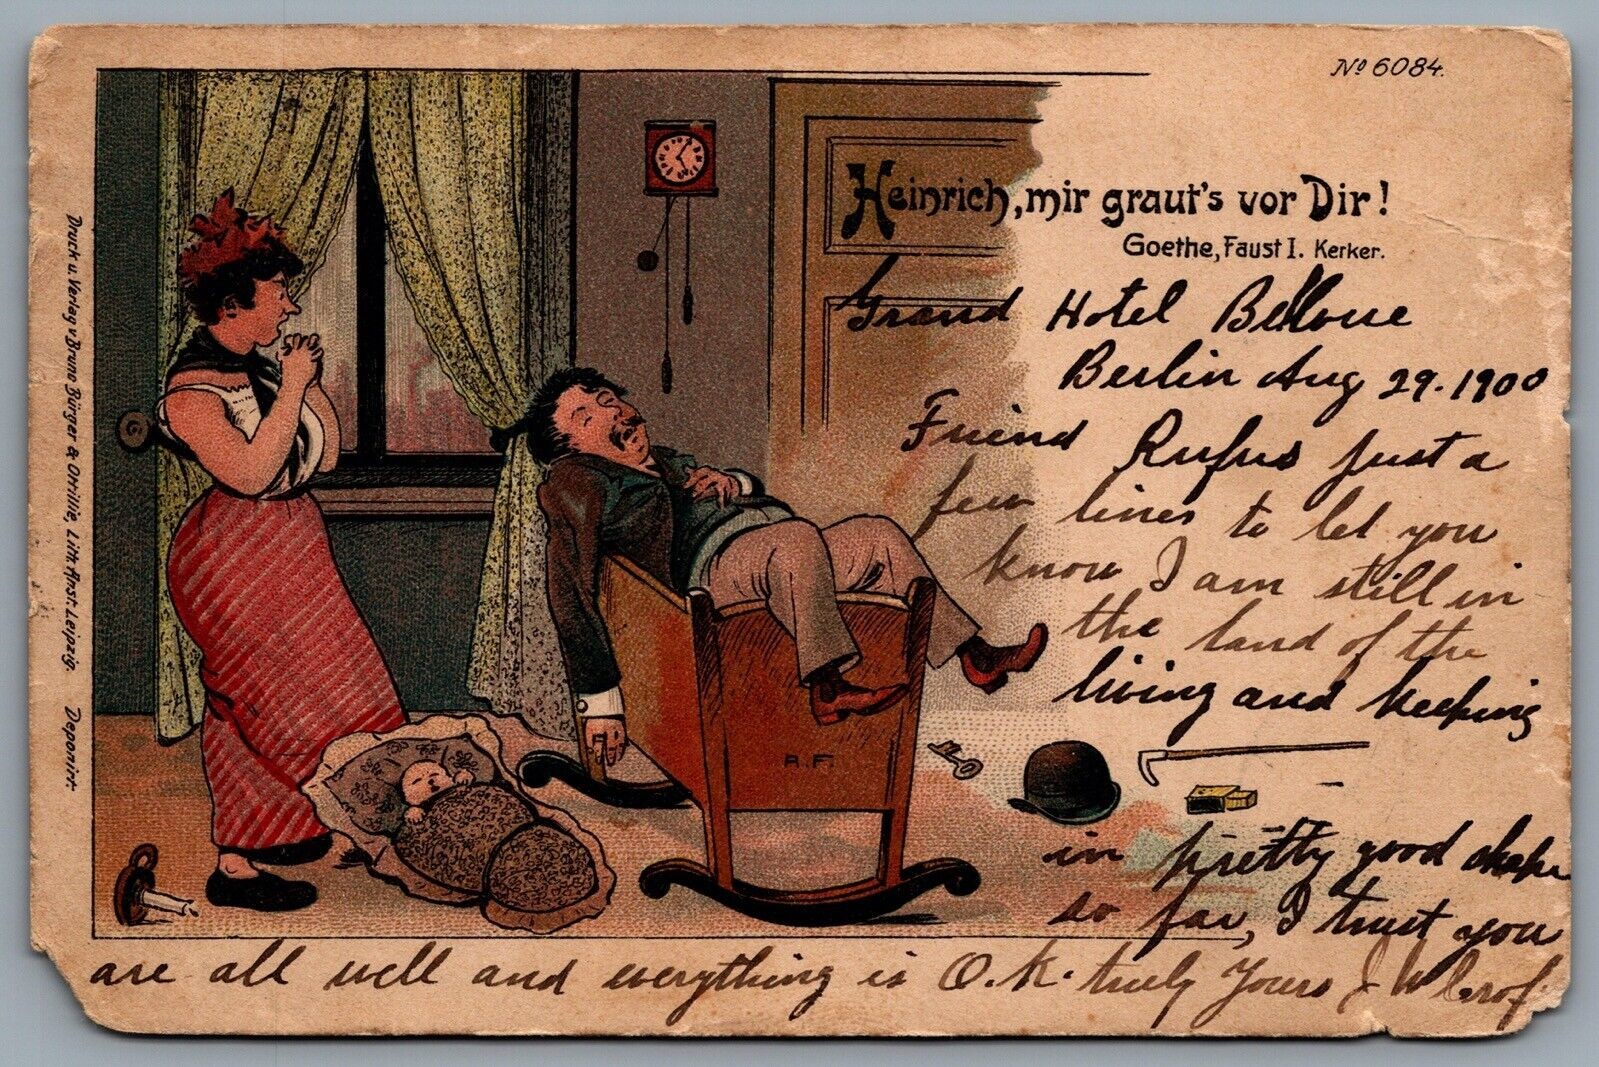 No 6084.
Heinrich, mir graut's vor Dir!
Goethe, Faust I. Kerker.
Grand Hotel Bellvue
Berlin Aug 29. 1900
Friend Rufus just a
few lines to let you
know I am still in
the land of the
living and keeping
in pretty good shape
so far, I trust you
are all well and everything is O.K. truly Yours J W
A.F.
Druck u. Verlag v. Bruno Bürger & Ottillie, Lith. Anst. Leipzig. Deponirt.